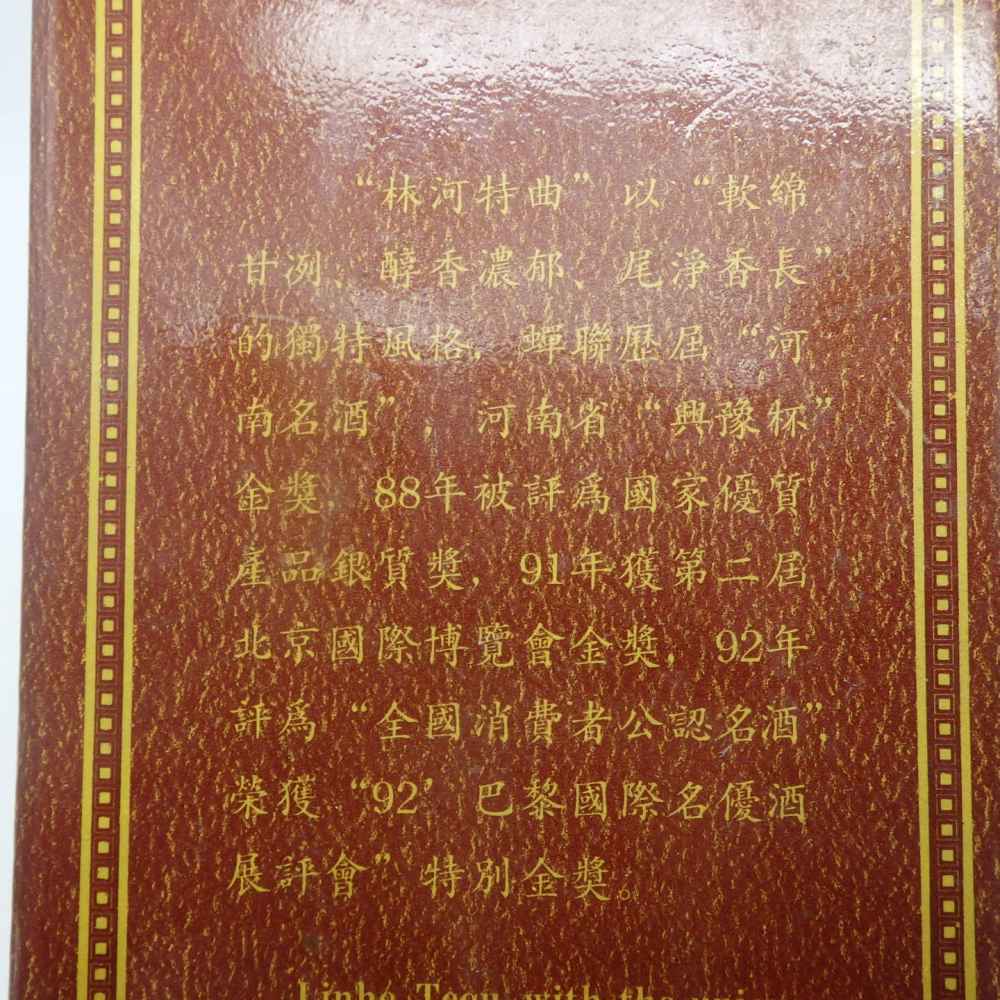 “林河特曲”以“軟綿
甘冽、醇香濃郁、尾淨香長”
的獨特風格，蟬聯歷屆“河
南名酒”，河南省“興豫杯”
金獎，88年被評爲國家優質
產品銀質獎，91年獲第二屆
北京國際博覽會金獎，92年
評爲“全國消費者公認名酒”，
榮獲“92’巴黎國際名優酒
展評會”特別金獎。
Linhe Tequ, with the uni